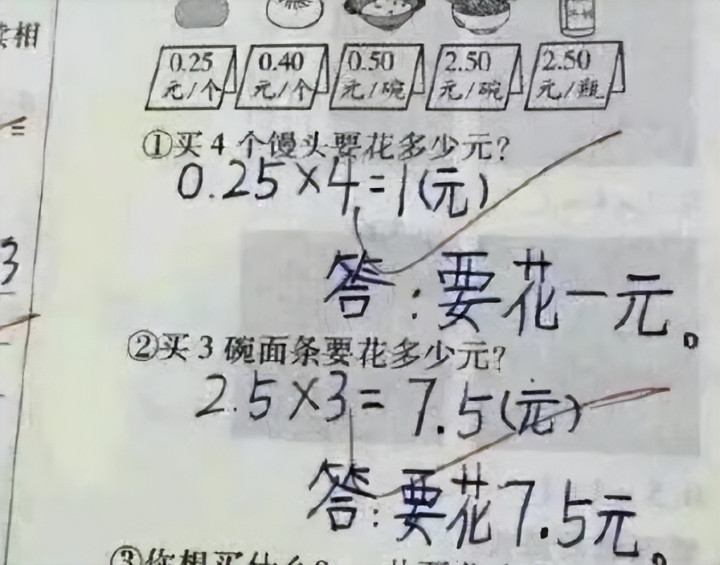 0.25 0.40 0.50 2.50 2.50
元/个 元/个 元/碗 元/碗 元/罐
①买 4 个馒头要花多少元?
0.25×4=1(元)
答:要花一元。
②买 3 碗面条要花多少元?
2.5×3=7.5(元)
答:要花7.5元。
③你想买什么?
相
=
3